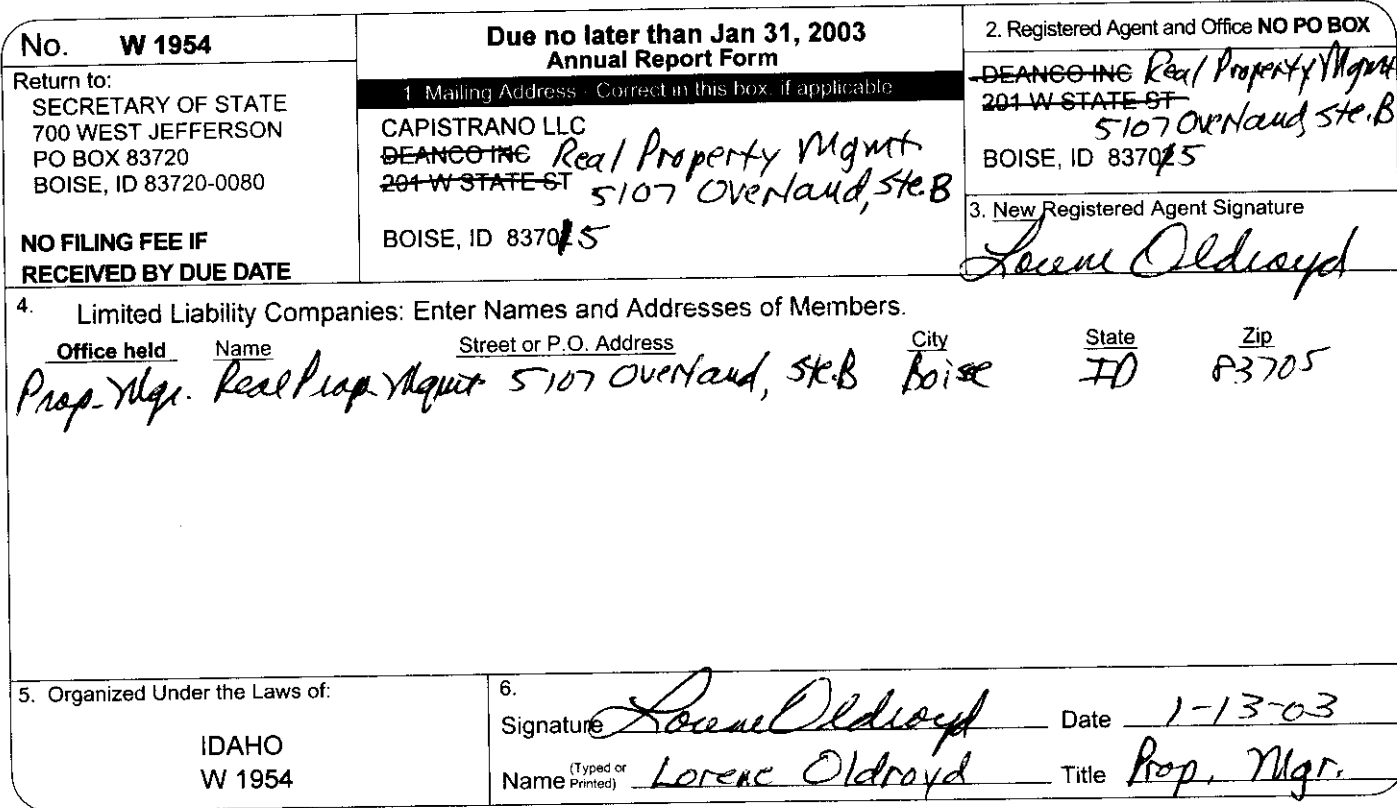 No. W 1954
Return to:
SECRETARY OF STATE
700 WEST JEFFERSON
PO BOX 83720
BOISE, ID 83720-0080
NO FILING FEE IF
RECEIVED BY DUE DATE
Due no later than Jan 31, 2003
Annual Report Form
1. Mailing Address - Correct in this box, if applicable
CAPISTRANO LLC
DEANCO INC Real Property Mgmt
201 W STATE ST 5107 Overland, Ste.B
BOISE, ID 83705
2. Registered Agent and Office NO PO BOX
DEANCO INC Real Property Mgmt
201 W STATE ST
5107 Overland, Ste.B
BOISE, ID 83705
3. New Registered Agent Signature
Lorene Oldroyd
4. Limited Liability Companies: Enter Names and Addresses of Members.
Office held Name Street or P.O. Address City State Zip
Prop. Mgr. Real Prop. Mgmt 5107 Overland, Ste.B Boise ID 83705
5. Organized Under the Laws of:
IDAHO
W 1954
6.
Signature Lorene Oldroyd Date 1-13-03
Name (Typed or Printed) Lorene Oldroyd Title Prop. Mgr.